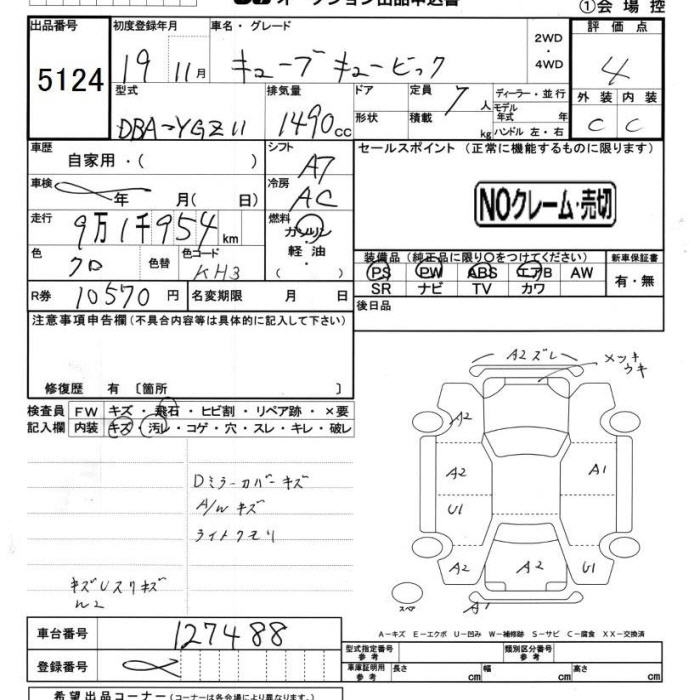 オークション出品申込書
①会場控
出品番号
5124
初度登録年月
19 11月
車名・グレード
キューブキュービック
2WD
・
4WD
評価点
4
外装 内装
C C
型式
DBA-YGZ11
排気量
1490cc
ドア
形状
定員 7人
積載 kg
ディーラー・並行
モデル年式 年
ハンドル 左・右
車歴
自家用・( )
シフト
A7
冷房
AC
車検
年 月( 日)
走行
9万1千954km
燃料
ガソリン
軽油
( )
色
クロ
色替
色コード
KH3
R券 10570円
名変期限 月 日
セールスポイント (正常に機能するものに限ります)
NOクレーム・売切
装備品(純正品に限り〇をつけてください)
PS PW ABS エアB AW
SR ナビ TV カワ
新車保証書
有・無
後日品
注意事項申告欄(不具合内容等は具体的に記入して下さい)
修復歴 有 〔箇所 〕
検査員記入欄
FW キズ・飛石・ヒビ割・リペア跡・×要
内装 キズ・汚レ・コゲ・穴・スレ・キレ・破レ
Dミラーカバーキズ
A/Wキズ
ライトクモリ
キズUスリキズ
A2ズレ
メッキ
ウキ
A2
A2
A1
U1
A2
A2
U1
A1
スペア
A-キズ E-エクボ U-凹み W-補修跡 S-サビ C-腐食 XX-交換済
車台番号
127488
登録番号
型式指定番号
参考
類別区分番号
参考
車庫証明用
参考
長さ cm 幅 cm 高さ cm
希望出品コーナー(コーナーは各会場により異なります)